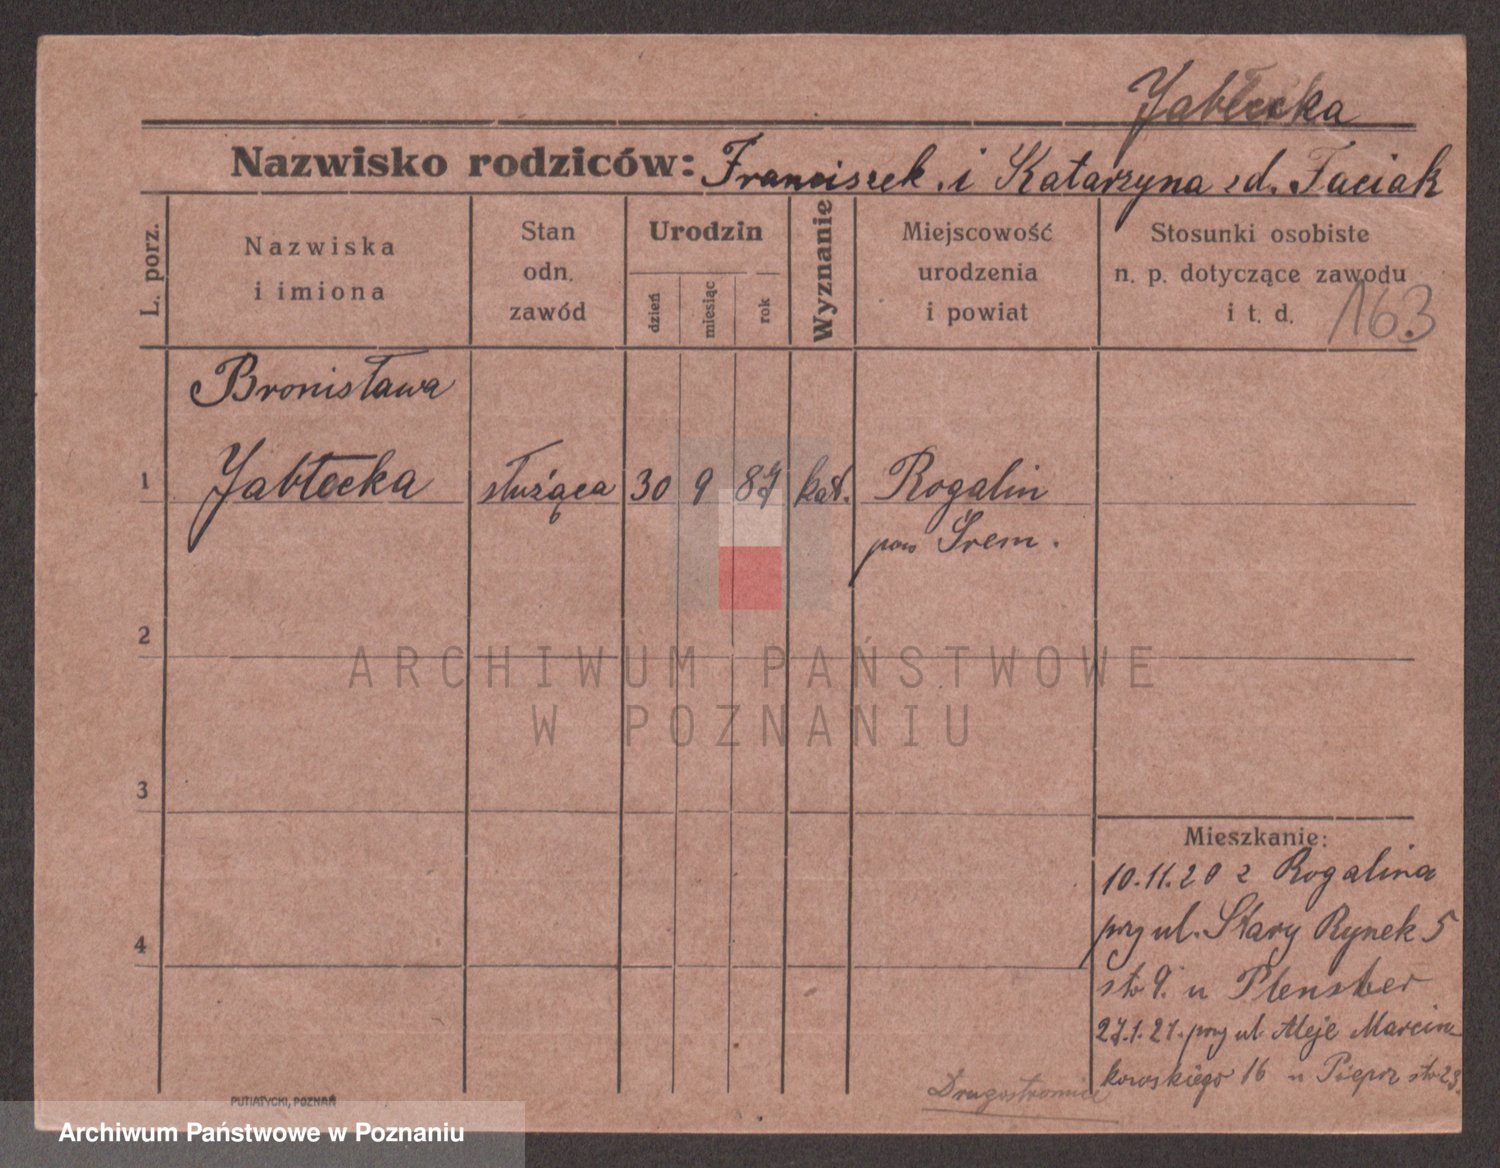 Jabłecka
Nazwisko rodziców: Franciszek i Katarzyna zd. Faciak
L. porz.
Nazwiska
i imiona
Stan
odn.
zawód
Urodzin
dzień
miesiąc
rok
Wyznanie
Miejscowość
urodzenia
i powiat
Stosunki osobiste
n. p. dotyczące zawodu
i t. d.
163
Bronisława
1 Jabłecka służąca 30 9 87 kat. Rogalin
pow Śrem.
2
ARCHIWUM PAŃSTWOWE
W POZNANIU
3
4
Mieszkanie:
10.11.20 z Rogalina
przy ul. Stary Rynek 5
u
27.1.21. przy ul. Aleje Marcin
kowskiego 16 u
Drugostronnie
PUTIATYCKI, POZNAŃ
Archiwum Państwowe w Poznaniu